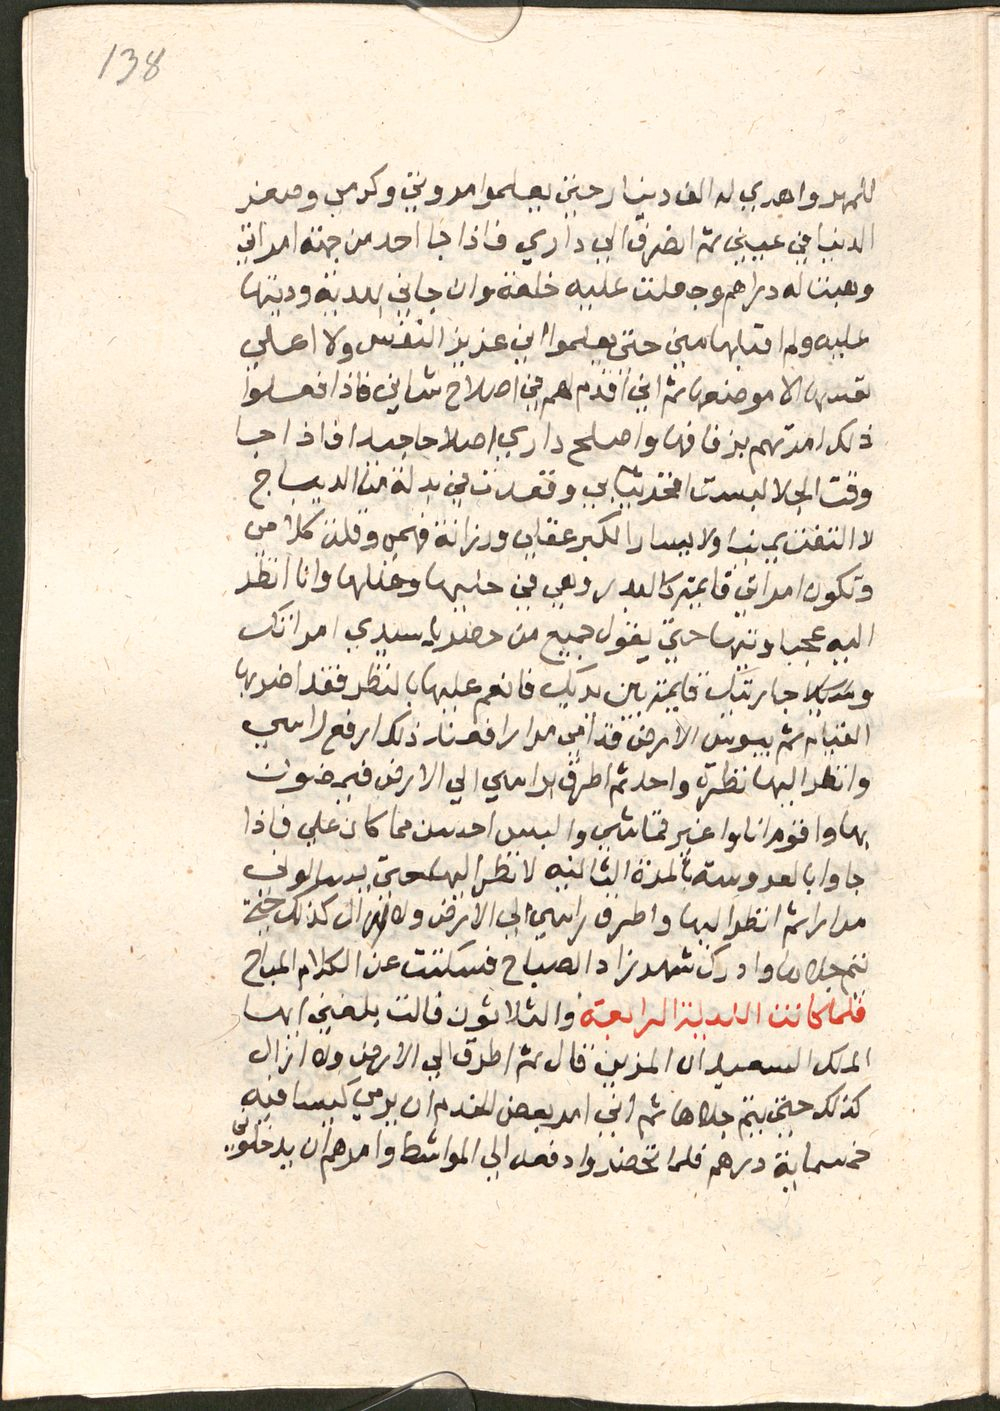 138
للمهر واهدي له الف دينار حتى يعلموا مروتي وكرمي وصغر
الدنيا في عيني ثم انصرف الى داري فاذا جا احد من جهة امراتي
وهبت له دراهم وجعلت عليه خلعة وان جاني بهدية رديتها
عليه ولم اقبلها مني حتى يعلموا اني عزيز النفس ولا اعلي
نفسي الا موضعها ثم اني اقدم لهم في اصلاح شاني فاذا فعلوا
ذلك امرتهم بزفافها واصلح داري اصلاحا جيدا فاذا جا
وقت الجلا لبست افخر ثيابي وقعدت في بدلة من الديباج
لا التفت يمينا ولا يسارا لكبر عقلي ورزانة فهمي وقلة كلامي
وتكون امراتي قايمة كالبدر وهي في حليها وحللها وانا انظر
اليه عجبا وتيها حتى يقول جميع من حضر يا سيدي امراتك
و جارتك قايمة بين يديك فانعم عليها بالنظر فقد اضر بها
القيام ثم يبوس الارض قدامي مرارا فعند ذلك ارفع راسي
وانظر اليها نظرة واحده ثم اطرق براسي الي الارض فيمضون
بها واقوم انا واغير قماشي والبس احسن مما كان علي فاذا
جاوا بالعروسة المرة الثانيه لا انظر اليها حتى يسالوني
مرارا ثم انظر اليها واطرق راسي الي الارض ولم ازال كذلك حتى
تتم جلاها وادرك شهرزاد الصباح فسكتت عن الكلام المباح
فلما كانت الليلة الرابعة والثلاثون قالت بلغني ايها
الملك السعيد ان المزين قال ثم اطرق الي الارض ولم ازال
كذلك حتى يتم جلاها ثم اني امر بعض الخدم ان يرمي كيسا فيه
خمسماية درهم فلما تحضر وادفعه الي المواشط وامرهم ان يدخلوني